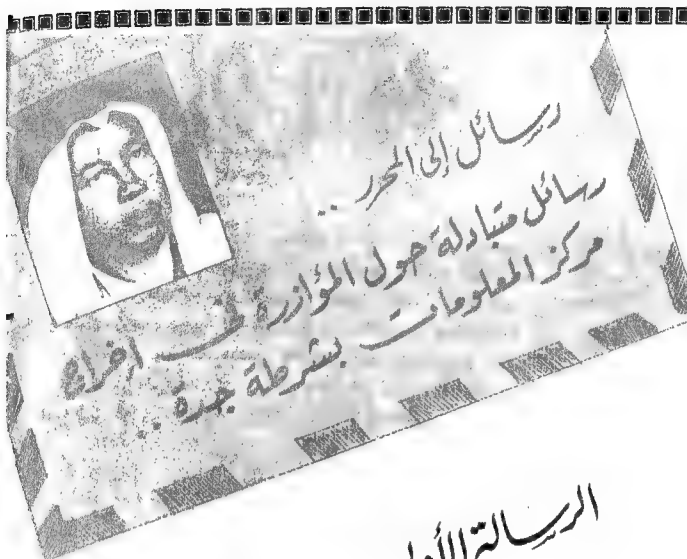 رسائل إلى المحرر ..
رسائل متبادلة حول المؤازرة في إخراج
مركز المعلومات بشرطة جدة ..
الرسالة الأولى